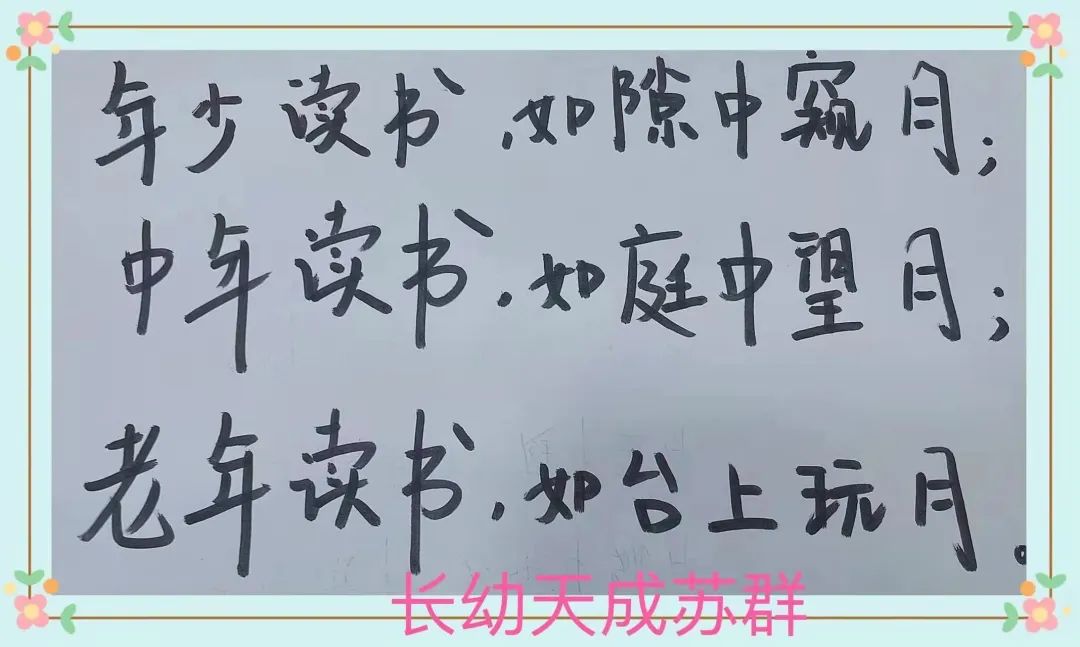 年少读书，如隙中窥月；
中年读书，如庭中望月；
老年读书，如台上玩月。
长幼天成苏群